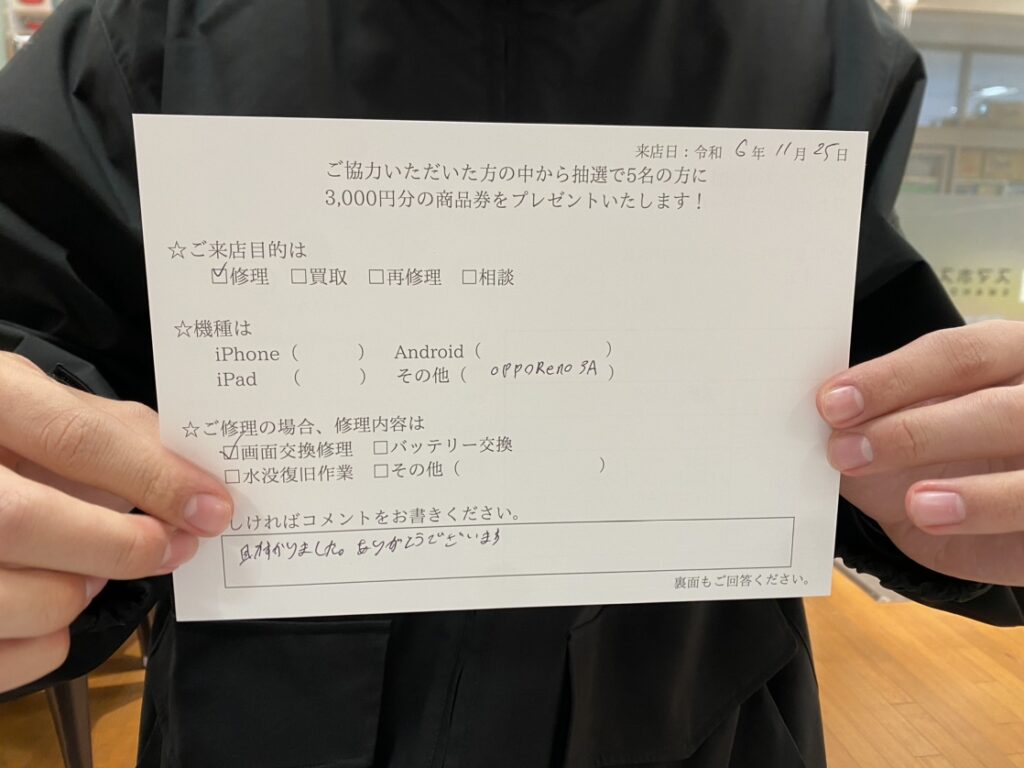 来店日：令和 6年 11月 25日
ご協力いただいた方の中から抽選で5名の方に
3,000円分の商品券をプレゼントいたします！
☆ご来店目的は
☑修理 □買取 □再修理 □相談
☆機種は
iPhone（ ） Android（ ）
iPad （ ） その他（ OPPOReno 3A ）
☆ご修理の場合、修理内容は
☑画面交換修理 □バッテリー交換
□水没復旧作業 □その他（ ）
しければコメントをお書きください。
助かりました。ありがとうございます
裏面もご回答ください。